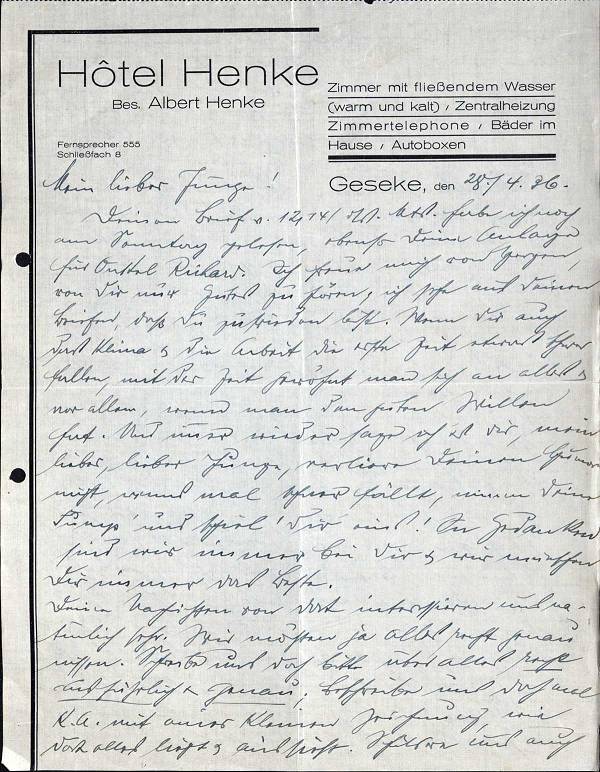 Hôtel Henke
Bes. Albert Henke
Fernsprecher 555
Schließfach 8
Zimmer mit fließendem Wasser
(warm und kalt) / Zentralheizung
Zimmertelephone / Bäder im
Hause / Autoboxen
Geseke, den 28./4.36.
Mein lieber Junge!
Deinen Brief v. 12./14. habe ich noch
am Sonntag gelesen, ebenso Deine Anlage
für Onkel Richard. Ich freue mich von Herzen,
von Dir nur Gutes zu hören, ich sehe aus Deinen
Briefen, daß Du zufrieden bist. Wenn Dir auch
das Klima & die Arbeit die erste Zeit etwas schwer
fallen, mit der Zeit gewöhnt man sich an alles &
vor allem, wenn man den guten Willen
hat. Und immer wieder sage ich es Dir, mein
lieber, lieber Junge, verliere Deinen Humor
nicht, wenns mal schwer fällt, nimm Deine
und spiel' Dir eins! In Gedanken
sind wir immer bei Dir & wir wünschen
Dir immer das Beste.
Deine Nachrichten von dort interessieren uns na-
türlich sehr. Wir möchten ja alles recht genau
wissen. Schreibe uns doch bitte über alles recht
ausführlich & genau, beschreibe uns doch mal
K.A. mit einer kleinen Zeichnung, wie
dort alles liegt & aussieht. Schildere uns auch